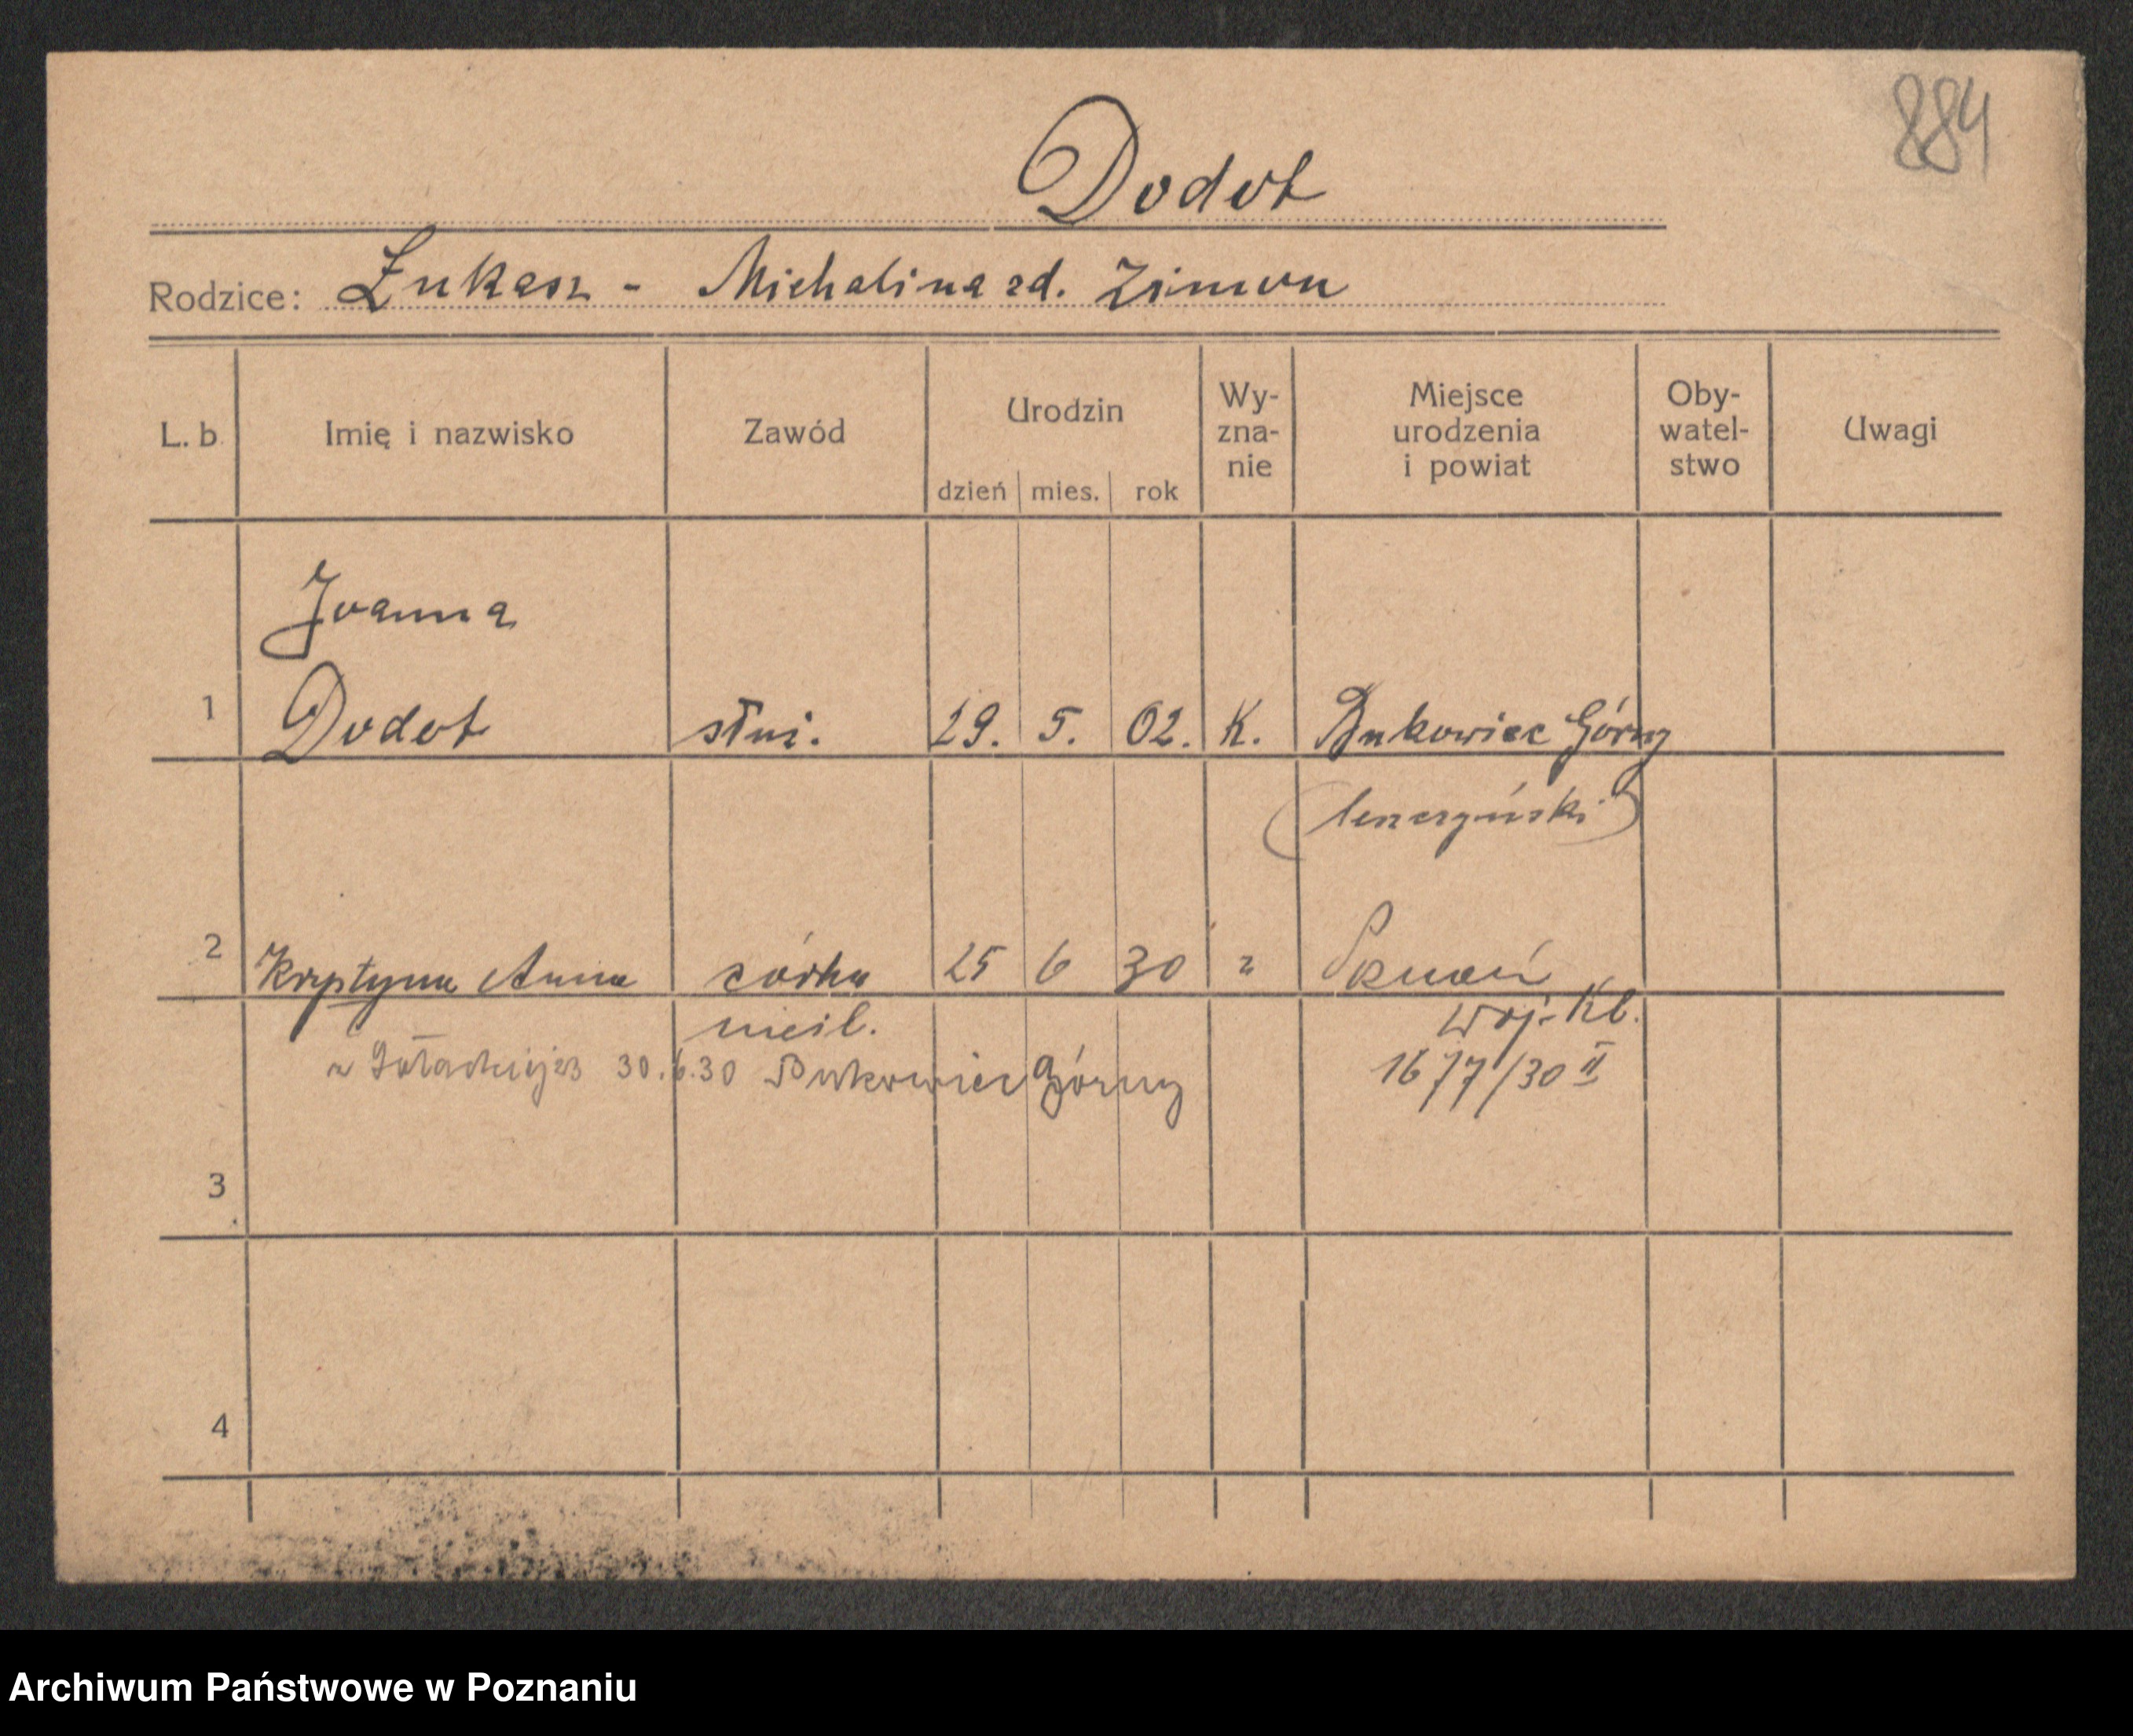 884
Dodot
Rodzice: Łukasz - Michalina zd. Zimon
L. b. Imię i nazwisko Zawód Urodzin Wy- Miejsce Oby- Uwagi
zna- urodzenia watel-
nie i powiat stwo
dzień mies. rok
Joanna
1 Dodot służ. 29. 5. 02. K. Bukowiec Górny
(leszczyński)
2 Krystyna Anna córka 25 6 30 " Poznań
nieśl. Woj. Kl.
30.6.30 Bukowiec Górny 1677/30 II
3
4
Archiwum Państwowe w Poznaniu